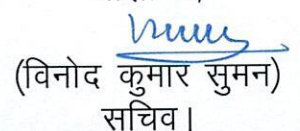 (विनोद कुमार सुमन)
सचिव।